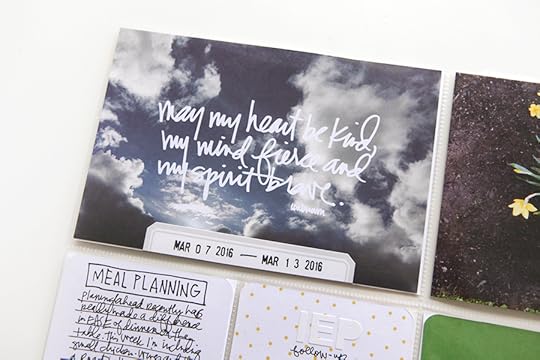 may my heart be kind,
my mind fierce and
my spirit brave.
unknown
MAR 0 7 2016 — MAR 1 3 2016
MEAL PLANNING
Planning ahead recently has
really made a difference
in EASE of dinners at the
table. This week I'm including
small
IEP
follow-up